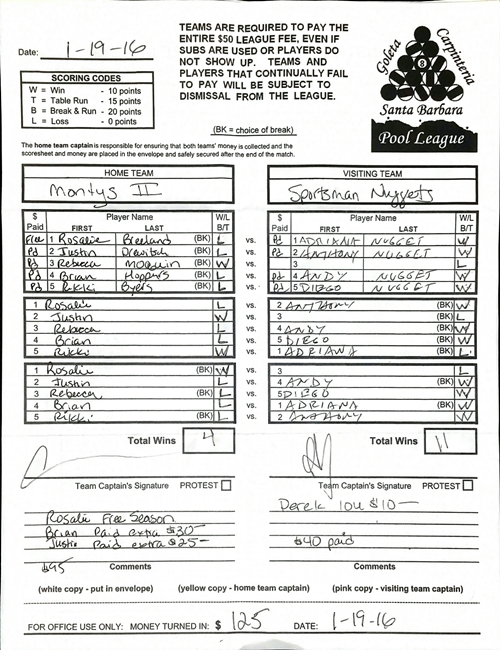 Date: 1-19-16
TEAMS ARE REQUIRED TO PAY THE
ENTIRE $50 LEAGUE FEE, EVEN IF
SUBS ARE USED OR PLAYERS DO
NOT SHOW UP. TEAMS AND
PLAYERS THAT CONTINUALLY FAIL
TO PAY WILL BE SUBJECT TO
DISMISSAL FROM THE LEAGUE.
Goleta
Carpinteria
8
Santa Barbara
Pool League
SCORING CODES
W = Win - 10 points
T = Table Run - 15 points
B = Break & Run - 20 points
L = Loss - 0 points
(BK = choice of break)
The home team captain is responsible for ensuring that both teams' money is collected and the
scoresheet and money are placed in the envelope and safely secured after the end of the match.
HOME TEAM
Montys II
VISITING TEAM
Sportsman Nuggets
$ Paid Player Name FIRST LAST W/L B/T
$ Paid Player Name FIRST LAST W/L B/T
Free 1 Rosalie Breeland (BK) L vs. Pd 1 ADRIANA NUGGET W
Pd 2 Justin (BK) L vs. Pd 2 ANTHONY NUGGET W
Pd 3 Rebecca (BK) W vs. 3 L
Pd 4 Brian Hoppers (BK) L vs. Pd 4 ANDY NUGGET W
Pd 5 Rikki Byers (BK) L vs. Pd 5 DIEGO NUGGET W
1 Rosalie L vs. 2 ANTHONY (BK) W
2 Justin W vs. 3 (BK) L
3 Rebecca L vs. 4 ANDY (BK) W
4 Brian L vs. 5 DIEGO (BK) W
5 Rikki W vs. 1 ADRIANA (BK) L
1 Rosalie (BK) W vs. 3 L
2 Justin L vs. 4 ANDY (BK) W
3 Rebecca (BK) L vs. 5 DIEGO W
4 Brian L vs. 1 ADRIANA (BK) W
5 Rikki (BK) L vs. 2 ANTHONY W
Total Wins 4
Total Wins 11
Team Captain's Signature PROTEST
Team Captain's Signature PROTEST
Rosalie Free Season
Brian Paid extra $30-
Justin Paid extra $25-
$95
Derek IOU $10-
$40 paid
Comments
Comments
(white copy - put in envelope) (yellow copy - home team captain) (pink copy - visiting team captain)
FOR OFFICE USE ONLY: MONEY TURNED IN: $ 125 DATE: 1-19-16